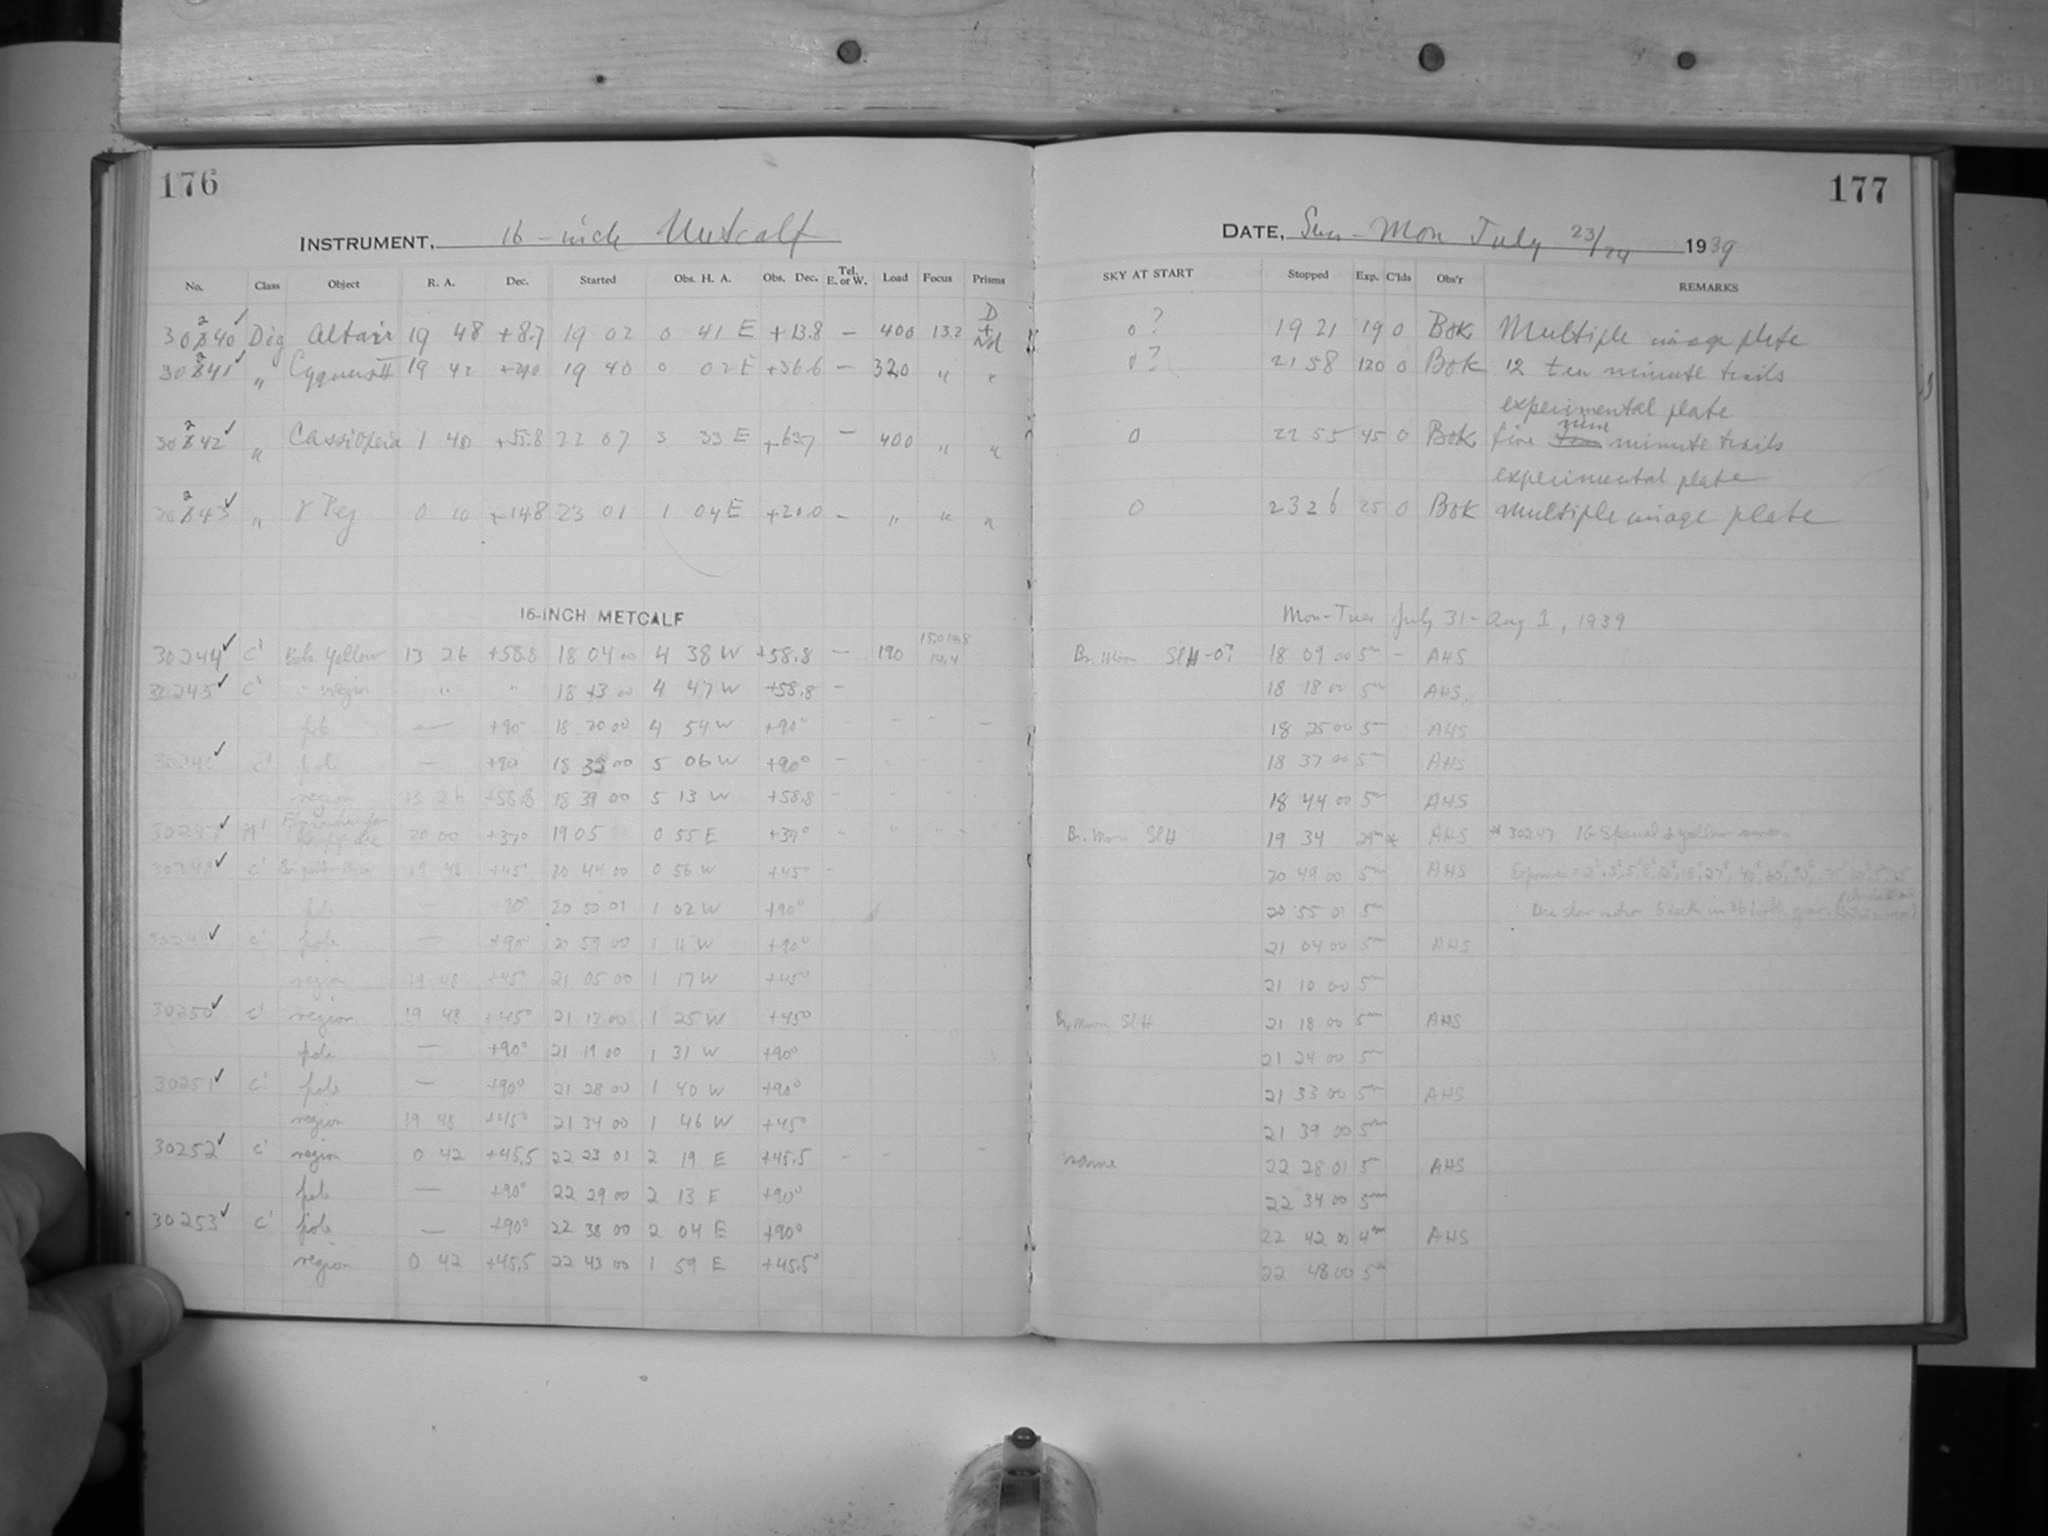 176
177
INSTRUMENT, 16-inch Metcalf
DATE, Sun-Mon July 23/24 1939
No. Class Object R. A. Dec. Started Obs. H. A. Obs. Dec. Tel. E. or W. Load Focus Prisms SKY AT START Stopped Exp. C'lds Obs'r REMARKS
30240 ✓ Dig Altair 19 48 +8.7 19 02 0 41 E +13.8 — 400 13.2 D + 0? 19 21 19 0 Bok Multiple image plate
30241 ✓ " Cygnus II 19 42 19 40 0 02 E +36.6 — 320 " " 0? 21 58 120 0 Bok 12 ten minute trails
experimental plate
30242 ✓ " Cassiopeia 1 40 +55.8 22 07 3 33 E +63.7 — 400 " " 0 22 55 45 0 Bok five nine minute trails
experimental plate
30243 ✓ " γ Peg 0 10 +14.8 23 01 1 04 E +21.0 — " " " 0 23 26 25 0 Bok Multiple image plate
16-INCH METCALF
Mon-Tues July 31 - Aug 1, 1939
30244 ✓ C' Yellow 13 26 +58.8 18 04 00 4 38 W +58.8 — 190 14.4 Br. Moon Sl H-0? 18 09 00 5m — AHS
30245 ✓ C' " region " " 18 13 00 4 47 W +58.8 — 18 18 00 5m AHS
pole — +90° 18 20 00 4 54 W +90° 18 25 00 5m AHS
30246 ✓ C' pole — +90 18 32 00 5 06 W +90° — 18 37 00 5m AHS
region 13 26 +58.8 18 39 00 5 13 W +58.8 — 18 44 00 5m AHS
30247 ✓ 20 00 +37° 19 05 0 55 E +37° Br. Moon Sl H 19 34 29m * AHS * 30247 IG Special & yellow
30248 ✓ C' 19 48 +45° 20 44 00 0 56 W +45° — 20 49 00 5m AHS Exposures =
pole — +90° 20 50 01 1 02 W +90° 20 55 01 5m Dec slow motion 6 teeth in 36 tooth gear
30249 ✓ C' pole — +90° 20 59 00 1 11 W +90° 21 04 00 5m AHS
region 19 48 +45° 21 05 00 1 17 W +45° 21 10 00 5m
30250 ✓ C' region 19 48 +45° 21 13 00 1 25 W +45° Br. Moon Sl H 21 18 00 5m AHS
pole — +90° 21 19 00 1 31 W +90° 21 24 00 5m
30251 ✓ C' pole — +90° 21 28 00 1 40 W +90° 21 33 00 5m AHS
region 19 48 +45° 21 34 00 1 46 W +45° 21 39 00 5m
30252 ✓ C' region 0 42 +45.5 22 23 01 2 19 E +45.5 — — — same 22 28 01 5m AHS
pole — +90° 22 29 00 2 13 E +90° 22 34 00 5m
30253 ✓ C' pole — +90° 22 38 00 2 04 E +90° 22 42 00 4m AHS
region 0 42 +45.5 22 43 00 1 59 E +45.5° 22 48 00 5m